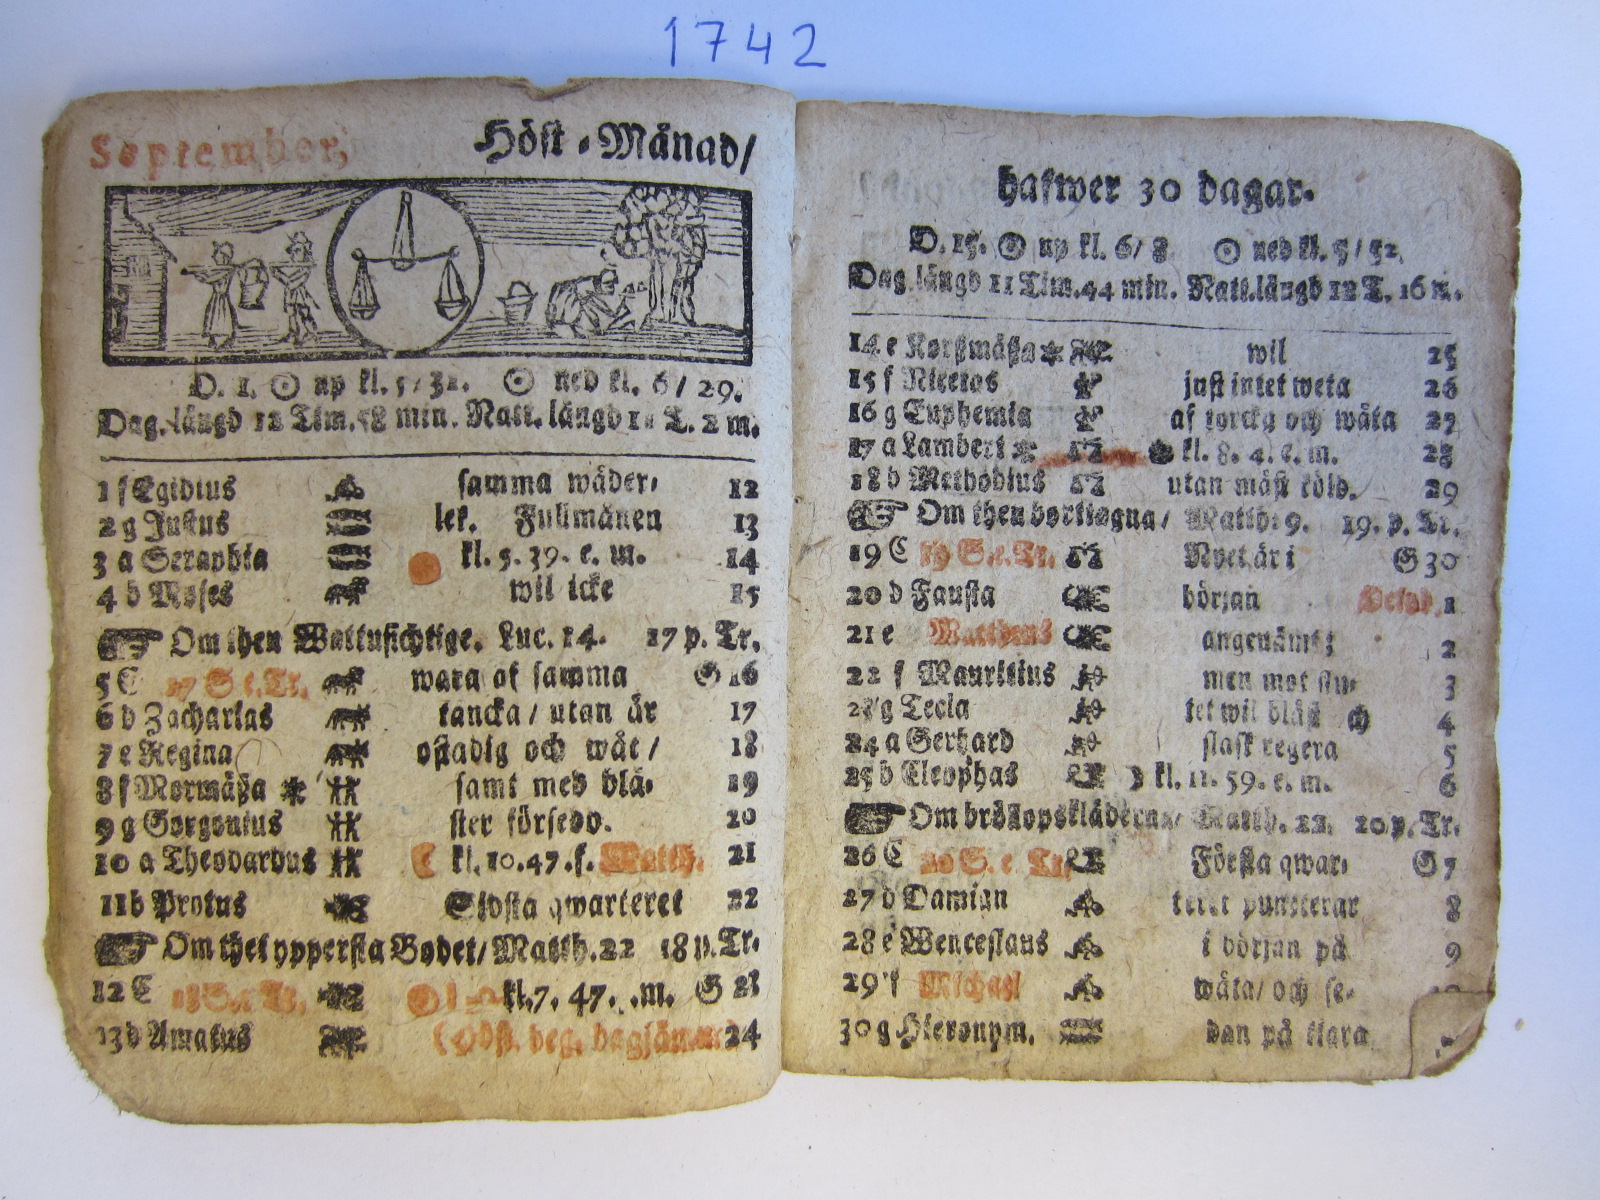 1742
September,
Höst-Månad/
D. 1. ☉ up kl. 5/31. ☉ ned kl. 6/29.
Dag.längd 12 Tim. 58 min. Natt.längd 11 T. 2 m.
1 f Egidius samma wäder- 12
2 g Justus lek. Fullmånen 13
3 a Seraphia kl. 5. 39. e. m. 14
4 b Moses wil icke 15
Om then Wattusichtige. Luc. 14. 17 p. Tr.
5 C 17 S. e. Tr. wara af samma G 16
6 d Zacharias tancka / utan är 17
7 e Regina ostadig och wåt / 18
8 f Mormäßa * samt med blå- 19
9 g Gorgonius ster försedd. 20
10 a Theodardus ☾ kl. 10. 47. f. Matth. 21
11 b Protus Sidsta qwarteret 22
Om thet yppersta Bodet / Matth. 22 18 p. Tr.
12 C 18 S. e. Tr. ☉ i ♎ kl. 7. 47. .m. G 23
13 d Amatus (Höst. beg. dagjämn. 24
hafwer 30 dagar.
D. 15. ☉ up kl. 6/8 ☉ ned kl. 5/52.
Dag.längd 11 Tim. 44 min. Natt.längd 12 T. 16 m.
14 e Korßmäßa * wil 25
15 f Nicetas just intet weta 26
16 g Euphemia af torcka och wäta 27
17 a Lambert * ● kl. 8. 4. e. m. 28
18 b Methodius utan mäst köld. 29
Om then borttagna / Matth. 9. 19. p. Tr.
19 C 19 S. e. Tr. Nyet är i G 30
20 d Fausta början Octob. 1
21 e Mattheus angenämt; 2
22 f Mauritius men mot slu- 3
23 g Tecla tet wil blåst och 4
24 a Gerhard slask regera 5
25 b Cleophas ☽ kl. 11. 59. e. m. 6
Om bröllopskläderna / Matth. 22. 20 p. Tr.
26 C 20 S. e. Tr. Första qwar- G 7
27 d Damian teret puncterar 8
28 e Wenceslaus i början på 9
29 f Michael wäta / och se- 10
30 g Hieronym. dan på klara